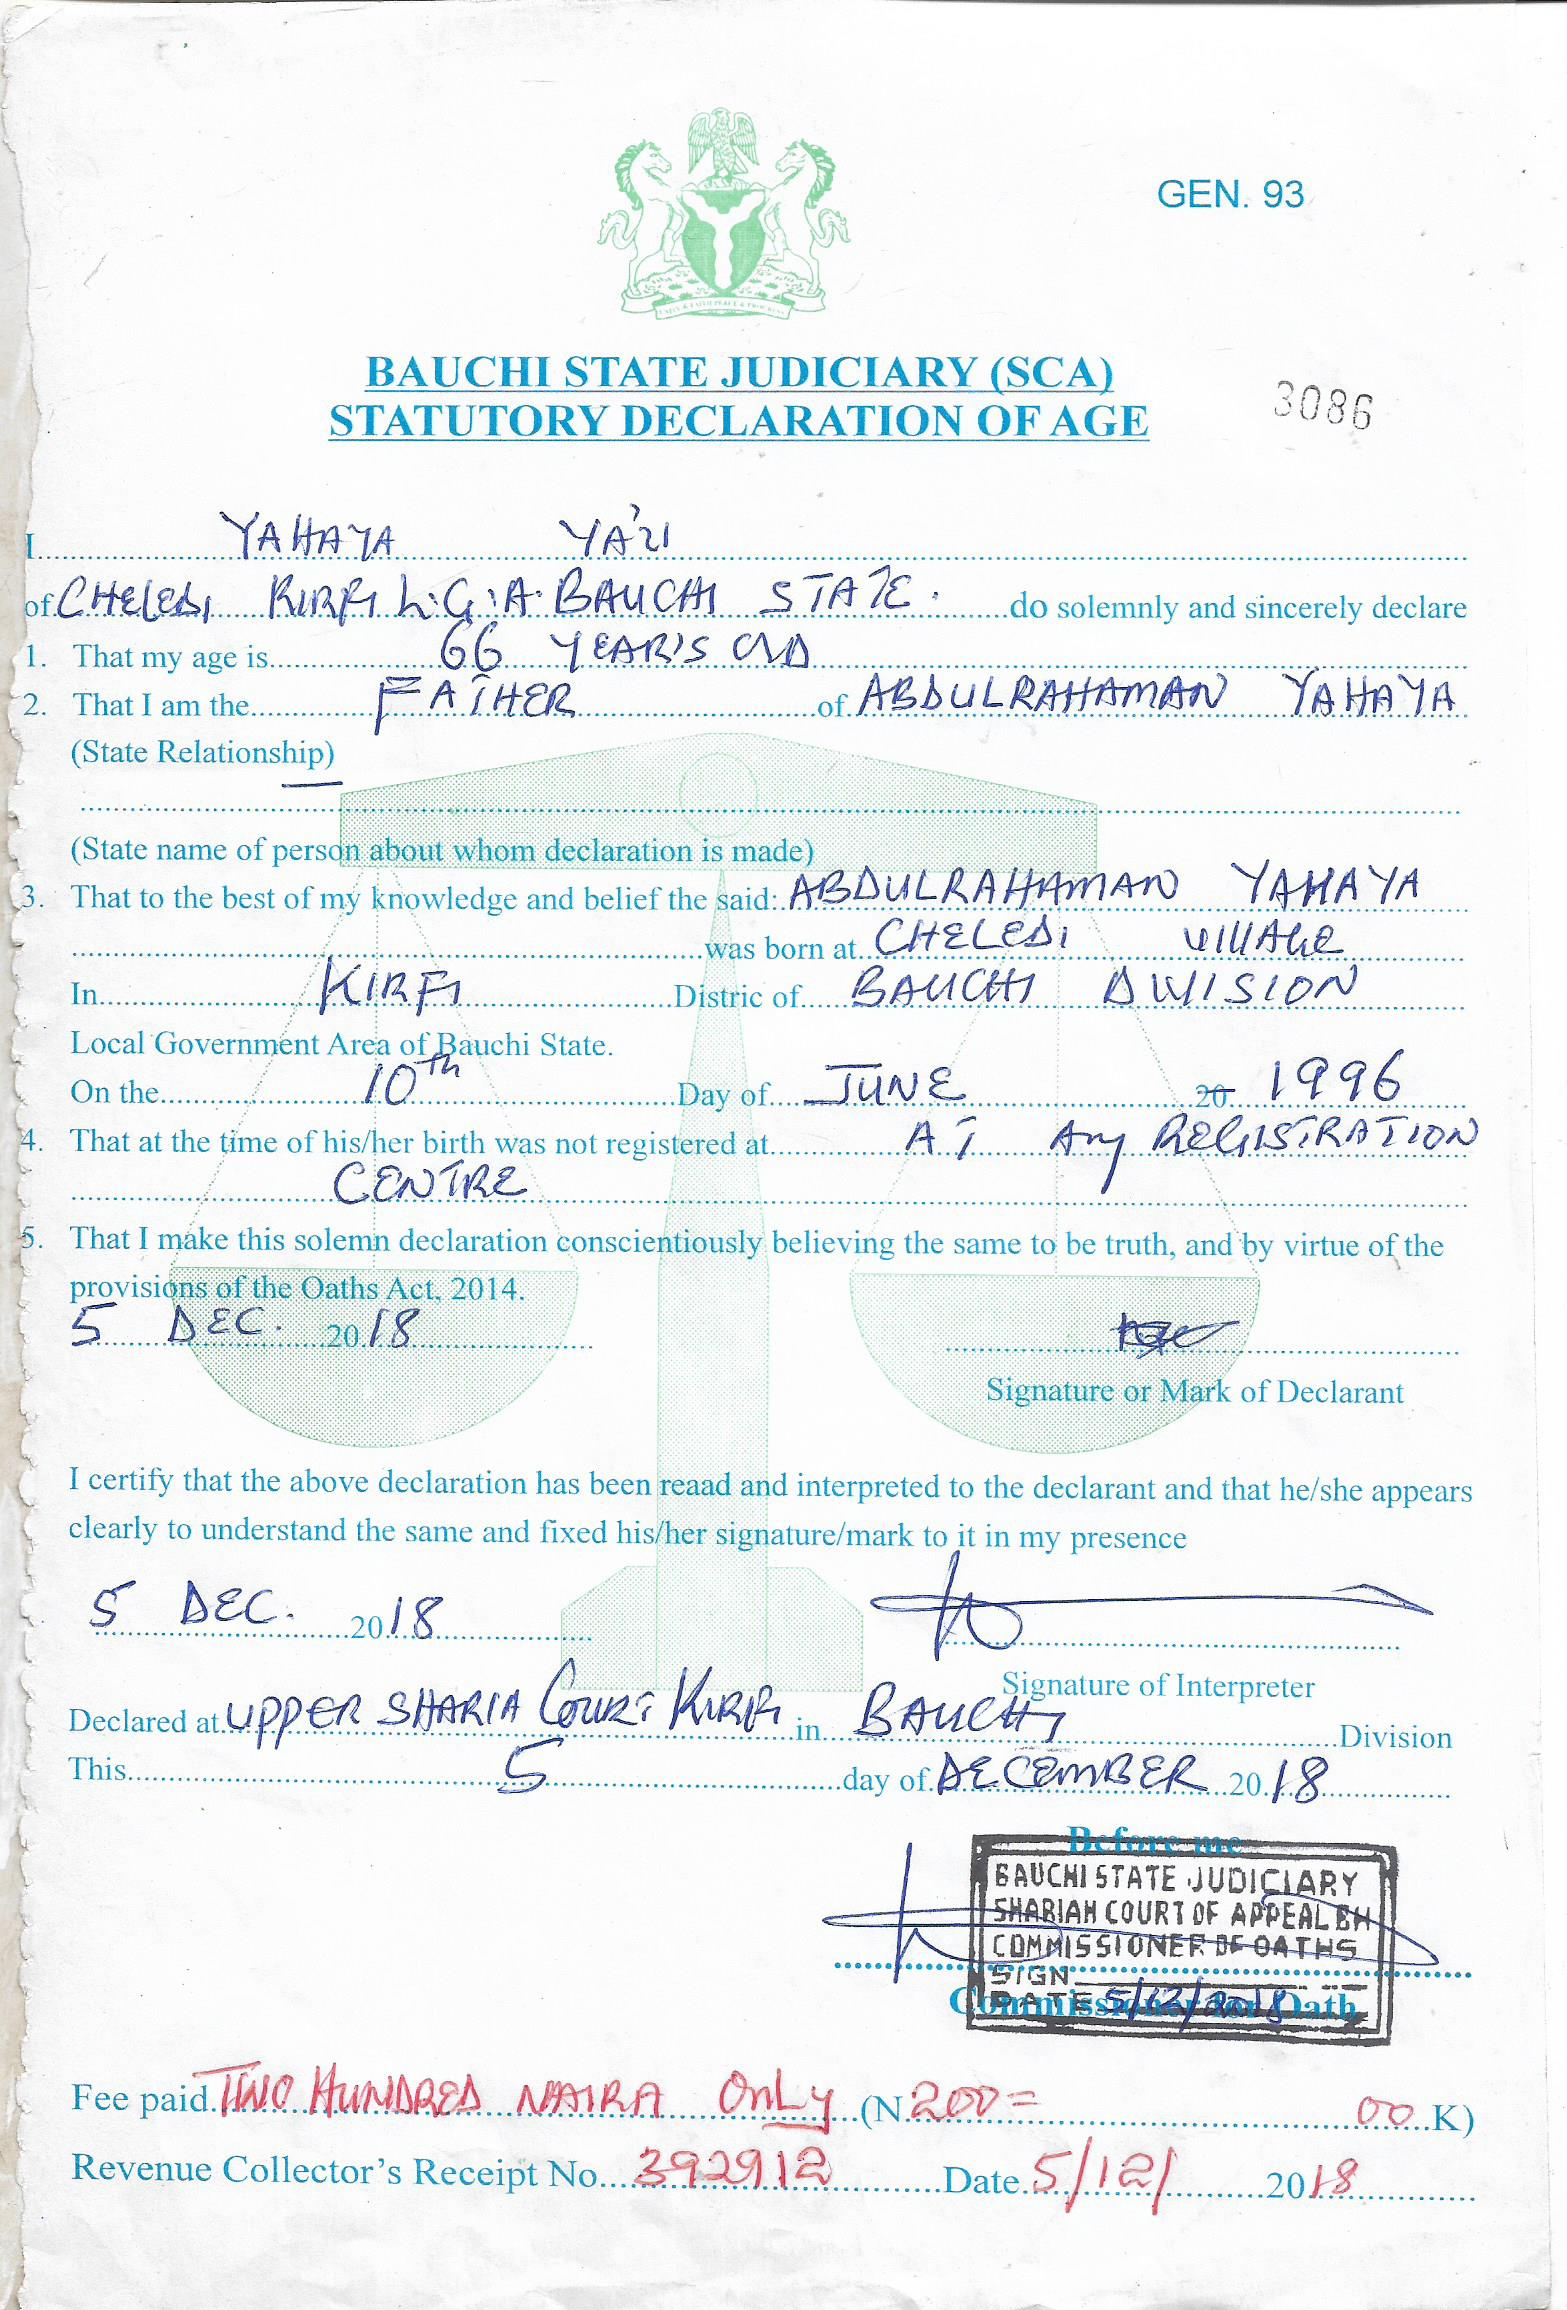 GEN. 93
BAUCHI STATE JUDICIARY (SCA)
STATUTORY DECLARATION OF AGE
3086
I YAHAYA YA'U
of CHELEDI KIRFI L.G.A. BAUCHI STATE. do solemnly and sincerely declare
1. That my age is 66 YEAR'S OLD
2. That I am the FATHER of ABDULRAHAMAN YAHAYA
(State Relationship)
(State name of person about whom declaration is made)
3. That to the best of my knowledge and belief the said: ABDULRAHAMAN YAHAYA
was born at CHELEDI VILLAGE
In KIRFI Distric of BAUCHI DIVISION
Local Government Area of Bauchi State.
On the 10th Day of JUNE 20 1996
4. That at the time of his/her birth was not registered at AT Any REGISTRATION
CENTRE
5. That I make this solemn declaration conscientiously believing the same to be truth, and by virtue of the
provisions of the Oaths Act, 2014.
5 DEC. 2018
Signature or Mark of Declarant
I certify that the above declaration has been reaad and interpreted to the declarant and that he/she appears
clearly to understand the same and fixed his/her signature/mark to it in my presence
5 DEC. 2018
Signature of Interpreter
Declared at UPPER SHARIA COURT KIRFI in BAUCHI Division
This 5 day of DECEMBER 2018
Before me
BAUCHI STATE JUDICIARY
SHARIAH COURT OF APPEAL BH
COMMISSIONER OF OATHS
SIGN
DATE 5/12/2018
Commissioner for Oath
Fee paid TWO HUNDRED NAIRA ONLY (N 200= 00 K)
Revenue Collector's Receipt No. 392912 Date 5/12/ 2018